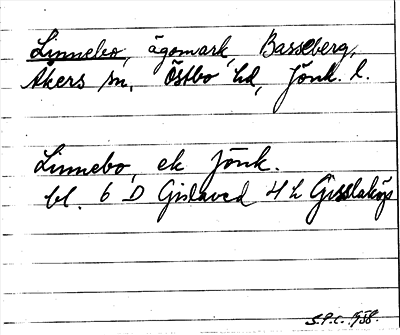 Linnebo, ägomark, Basseberg,
Åkers sn, Östbo hd, Jönk. l.
Linnebo, ek Jönk.
bl. 6 D Gislaved 4 h Gisslaköp
S.P.C. 1938.